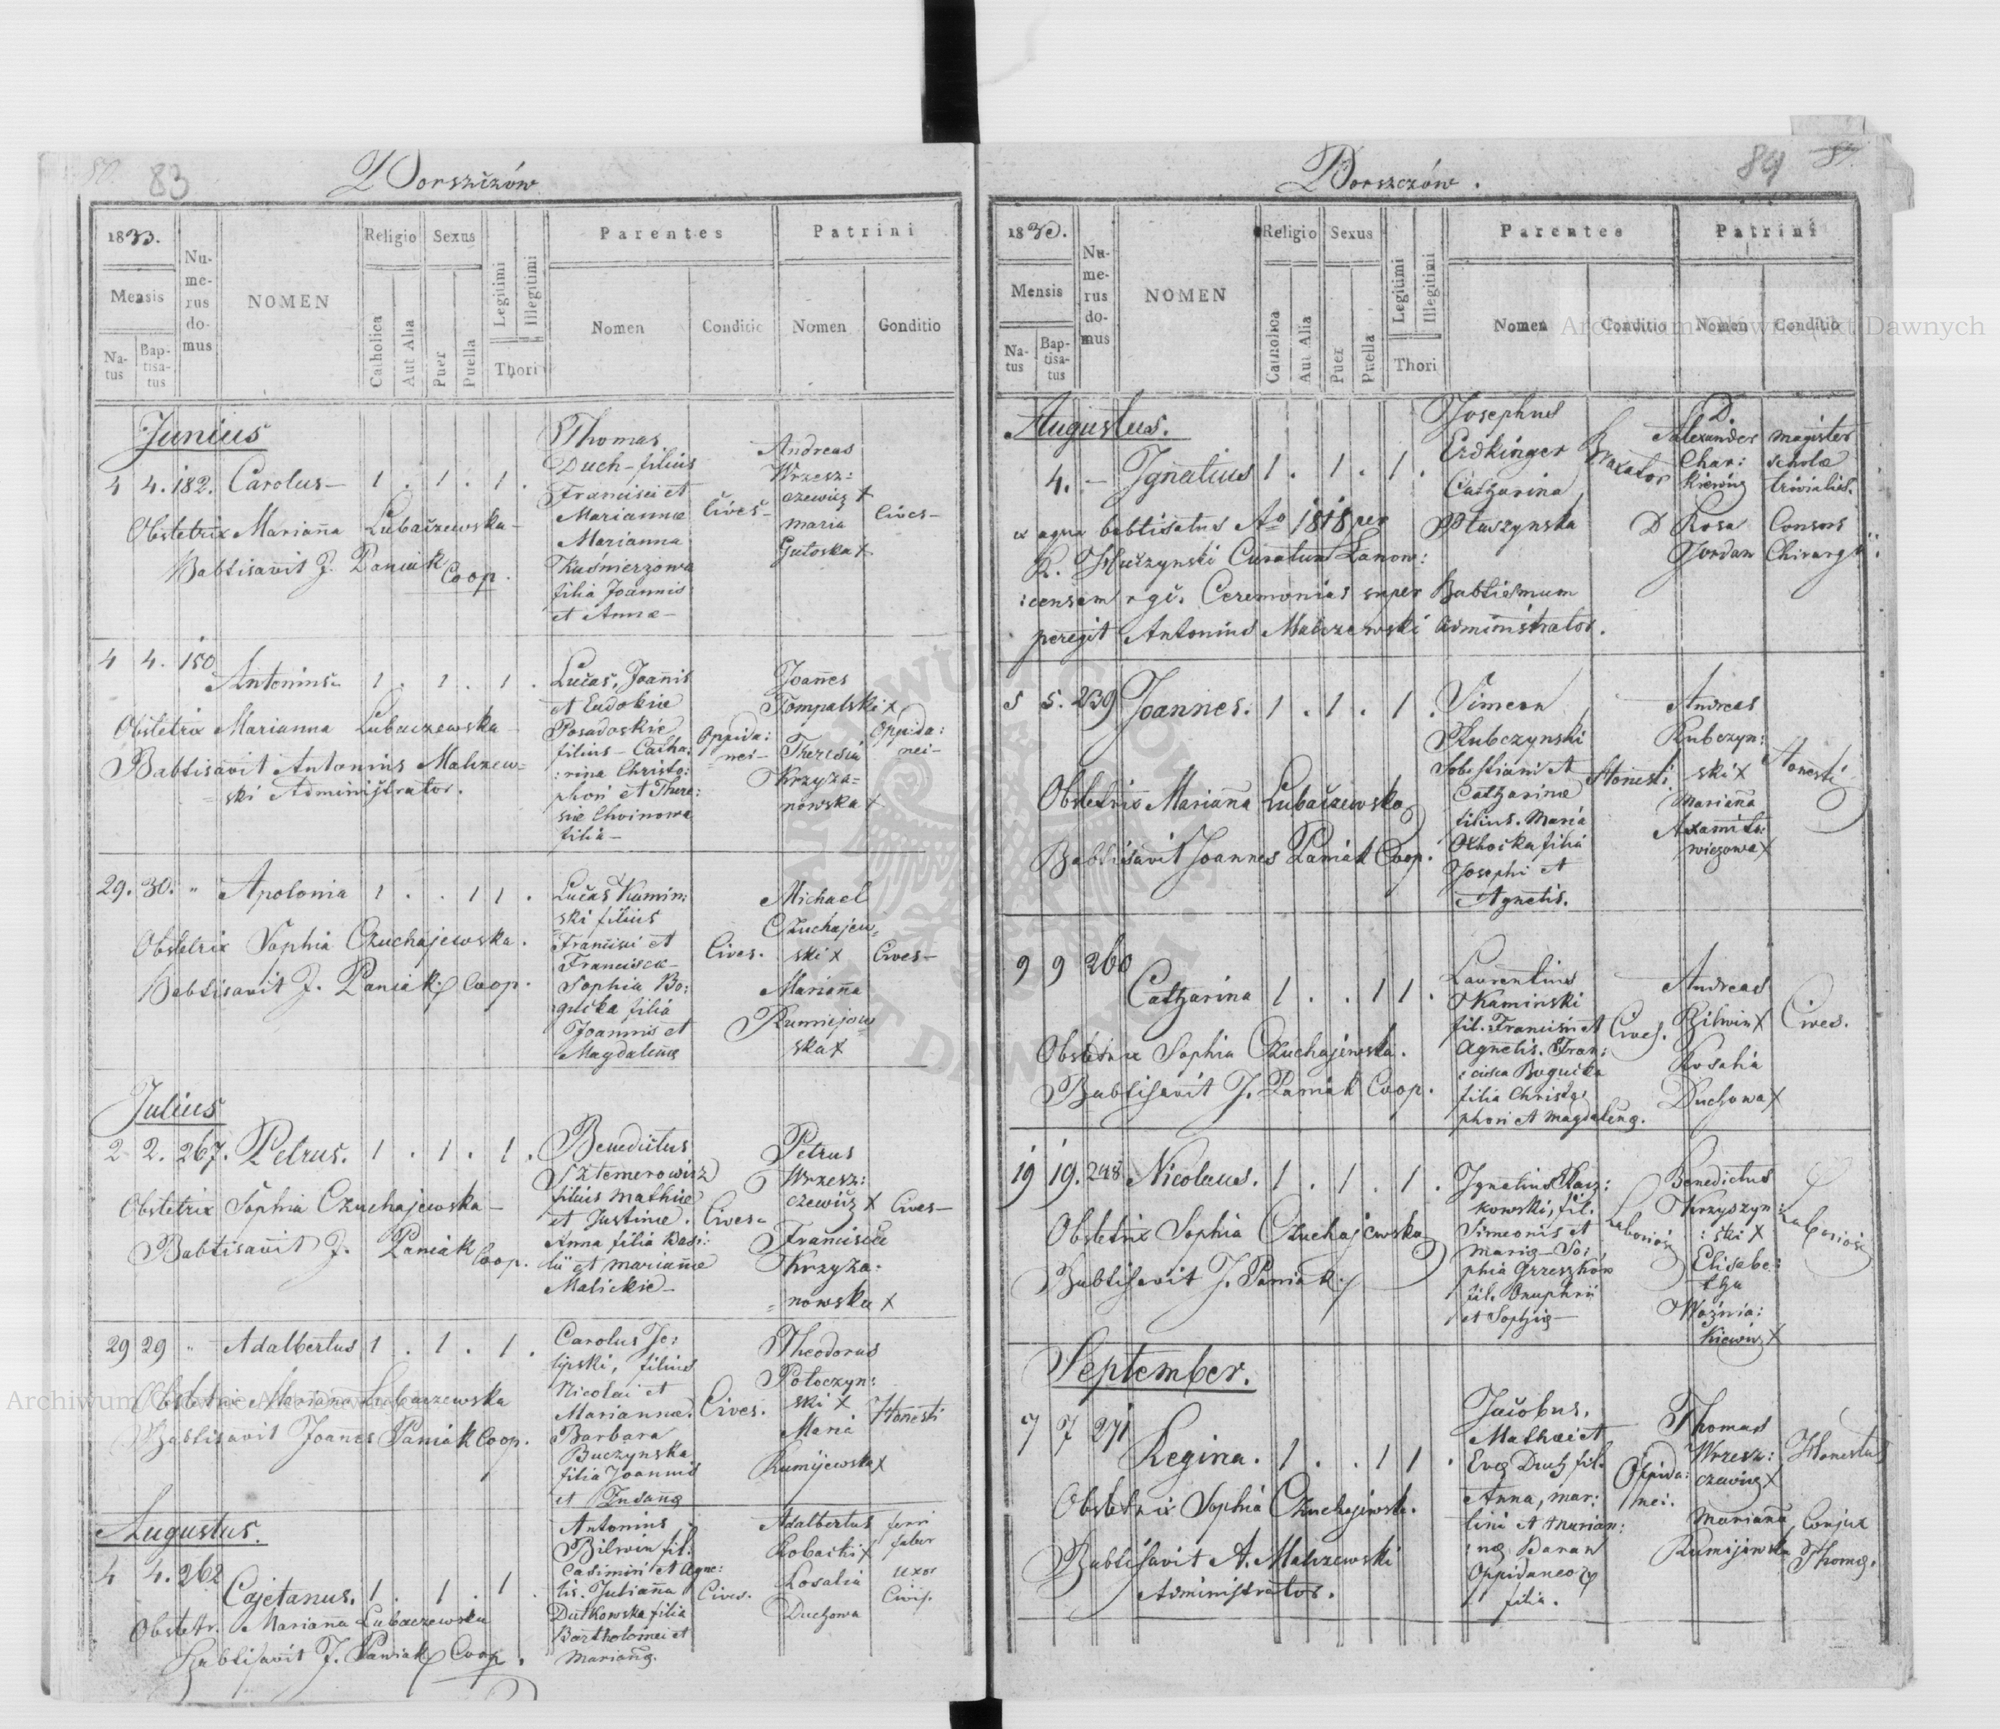 83
Borszczów
1833.
Mensis
Natus
Baptisatus
Numerus domus
NOMEN
Religio
Catholica
Aut Alia
Sexus
Puer
Puella
Legitimi
Illegitimi
Thori
Parentes
Nomen
Conditio
Patrini
Nomen
Conditio
Junius
4 4. 182. Carolus 1 . 1 . 1 .
Obstetrix Marianna Lubaczewska
Babtisavit J. Paniak Coop.
Thomas
Duch filius
Francisci et
Mariannae
Marianna
Kuśnierzowa
filia Joannis
et Annae
Cives
Andreas
Wrzesz:
czewicz X
Maria
Gutoska X
Cives
4 4. 150 Antonius 1 . 1 . 1 .
Obstetrix Marianna Lubaczewska
Babtisavit Antonius Malczew=
ski Administrator.
Lucas, Joannis
et Eudokiae
Posadoskie
filius Catha:
:rina Christo:
phori et There:
siae Chvinowa
filia
Oppida:
nei
Joannes
Tompalski X
Theresia
Krzyza=
nowska X
Oppida:
nei
29. 30. " Apolonia 1 . . 1 1 .
Obstetrix Sophia Czuchajewska.
Babtisavit J. Paniak Coop.
Lucas Kamin:
ski filius
Francisci et
Francisca
Sophia Bo:
gucka filia
Joannis et
Magdalena
Cives.
Michael
Czuchajew:
ski X
Marianna
Rumiejow
ska X
Cives
Julius
2 2. 267. Petrus. 1 . 1 . 1 .
Obstetrix Sophia Czuchajewska
Babtisavit J. Paniak Coop.
Benedictus
Sztemerowicz
filius Mathiae
et Justinae.
Anna filia Basi:
lii et Marianae
Malickie
Cives
Petrus
Wrzesz:
czewicz X
Francisca
Krzyza:
nowska X
Cives
29 29 " Adalbertus 1 . 1 . 1 .
Obstetrix Marianna Lubaczewska
Babtisavit Joannes Paniak Coop.
Carolus Je:
lipski, filius
Nicolai et
Mariannae.
Barbara
Buczynska
filia Joannis
et
Cives.
Theodorus
Potoczyn:
ski X
Maria
Rumijewska X
Honesti
Augustus.
4 4. 262 Cajetanus. 1 . 1 . 1 .
Obstetr. Marianna Lubaczewska
Babtisavit J. Paniak Coop.
Antonius
Bilwin fil:
Casimiri et Agne:
tis. Julianna
Dutkowska filia
Bartholomei et
Mariana.
Cives.
Adalbertus
Robacki X
Rosalia
Duchowa
ferri
faber
uxor
Civis.
84
Borszczów.
1833.
Mensis
Natus
Baptisatus
Numerus domus
NOMEN
Religio
Catholica
Aut Alia
Sexus
Puer
Puella
Legitimi
Illegitimi
Thori
Parentes
Nomen
Conditio
Patrini
Nomen
Conditio
Augustus.
4. - Ignatius 1 . 1 . 1 .
ex aqua babtisatus Ao 1818 per
R. Curatum Lanow:
:censem rgc. Ceremonias super Babtismum
peregit Antonius Malczewski administrator.
Josephus
Erdkinger
Catharina
Ptaszynska
Braxator
D.
Alexander
Char:
kiewicz
magister
schola
trivialis.
D Rosa
Jordan
Consors
Chirurgi
5 5. 239 Joannes. 1 . 1 . 1 .
Obstetrix Marianna Lubaczewska
Babtisavit Joannes Paniak Coop.
Simeon
Kubczynski
Sobestiani et
Catharinae
filius. Maria
filia
Josephi et
Agnetis.
Honesti.
Andreas
Rubczyn:
ski X
Marianna
wiczowa X
Honesti
9 9 260 Catharina 1 . . 1 1 .
Obstetrix Sophia Czuchajewska.
Babtisavit J. Paniak Coop.
Laurentius
Kaminski
fil. Francisci et
Agnetis. Fran:
:cisca Bogucka
filia Christo:
phori et Magdalena.
Cives.
Andreas
Bilwin X
Rosalia
Duchowa X
Cives.
19 19. 248 Nicolaus. 1 . 1 . 1 .
Obstetrix Sophia Czuchajewska
Babtisavit J. Paniak
Ignatius Kacz:
kowski, fil.
Simeonis et
Maria So:
phia Grzeszkow
fil. Onuphrii
et Sophia
Laboriosi
Benedictus
Krzyszyn:
:ski X
Elisabe:
tha
Woznia:
kiewicz X
Laboriosi
September.
7 7 271 Regina. 1 . . 1 1 .
Obstetrix Sophia Czuchajewska.
Babtisavit A. Malczewski
Administrator.
Jacobus,
Mathaei et
Eva Duch fil.
Anna, Mar:
tini et Marian:
:na Baran
Oppidaneo
filia.
Oppida:
nei.
Thomas
Wrzesz:
czewicz X
Marianna
Rumijewska
Honestus
Conjux
Thomae.
Archiwum Główne Akt Dawnych